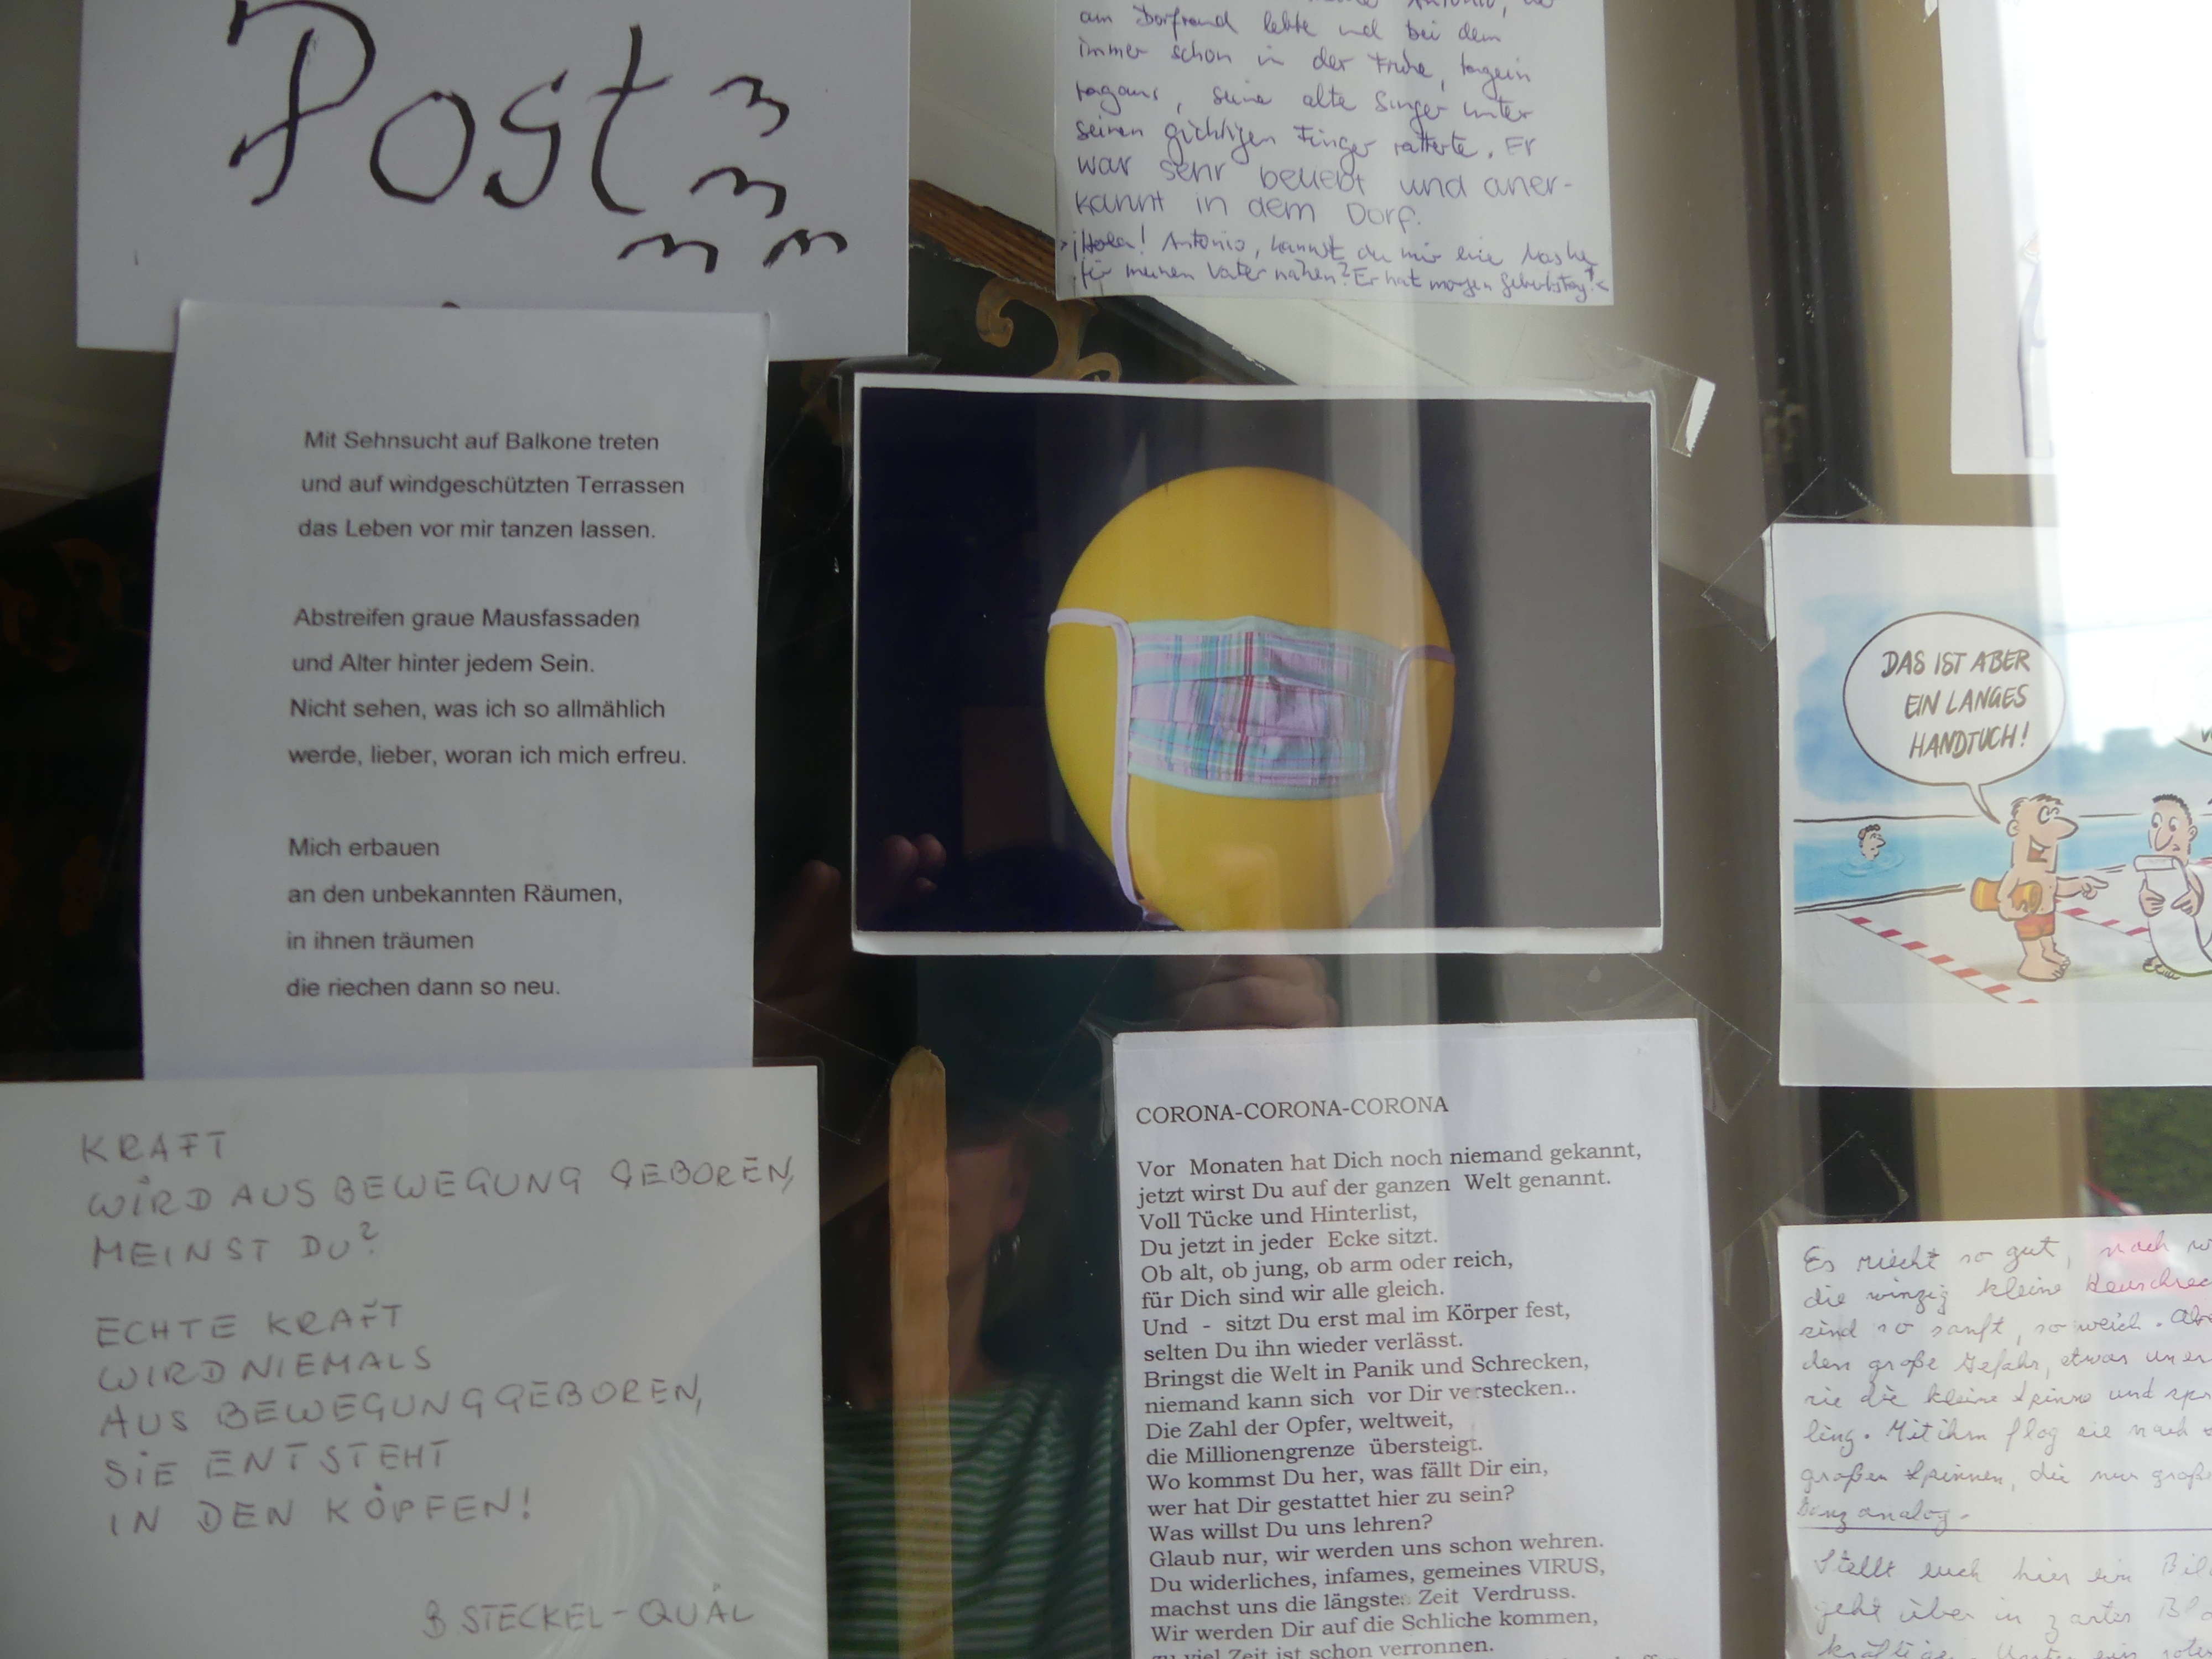 Post
am Dorfrand lebte und bei dem
immer schon in der Frühe, tagein
tagaus, seine alte Singer unter
seinen gichtigen Finger ratterte. Er
war sehr beliebt und aner-
kannt in dem Dorf.
>¡Hola! Antonio, kannst du mir eine Maske
für meinen Vater nähen? Er hat morgen Geburtstag!<
Mit Sehnsucht auf Balkone treten
und auf windgeschützten Terrassen
das Leben vor mir tanzen lassen.
Abstreifen graue Mausfassaden
und Alter hinter jedem Sein.
Nicht sehen, was ich so allmählich
werde, lieber, woran ich mich erfreu.
Mich erbauen
an den unbekannten Räumen,
in ihnen träumen
die riechen dann so neu.
DAS IST ABER
EIN LANGES
HANDTUCH!
KRAFT
WIRD AUS BEWEGUNG GEBOREN,
MEINST DU?
ECHTE KRAFT
WIRD NIEMALS
AUS BEWEGUNG GEBOREN,
SIE ENTSTEHT
IN DEN KÖPFEN!
B STECKEL-QUÄL
CORONA-CORONA-CORONA
Vor Monaten hat Dich noch niemand gekannt,
jetzt wirst Du auf der ganzen Welt genannt.
Voll Tücke und Hinterlist,
Du jetzt in jeder Ecke sitzt.
Ob alt, ob jung, ob arm oder reich,
für Dich sind wir alle gleich.
Und - sitzt Du erst mal im Körper fest,
selten Du ihn wieder verlässt.
Bringst die Welt in Panik und Schrecken,
niemand kann sich vor Dir verstecken..
Die Zahl der Opfer, weltweit,
die Millionengrenze übersteigt.
Wo kommst Du her, was fällt Dir ein,
wer hat Dir gestattet hier zu sein?
Was willst Du uns lehren?
Glaub nur, wir werden uns schon wehren.
Du widerliches, infames, gemeines VIRUS,
machst uns die längste Zeit Verdruss.
Wir werden Dir auf die Schliche kommen,
zu viel Zeit ist schon verronnen.
Es riecht so gut, nach
die winzig kleine
sind so sanft, so weich.
den große Gefahr, etwas
sie die kleine Spinne und
ling. Mit ihm flog sie nach
großen Spinnen, die nur
Ganz analog.
Stellt euch hier ein
geht über in zartes